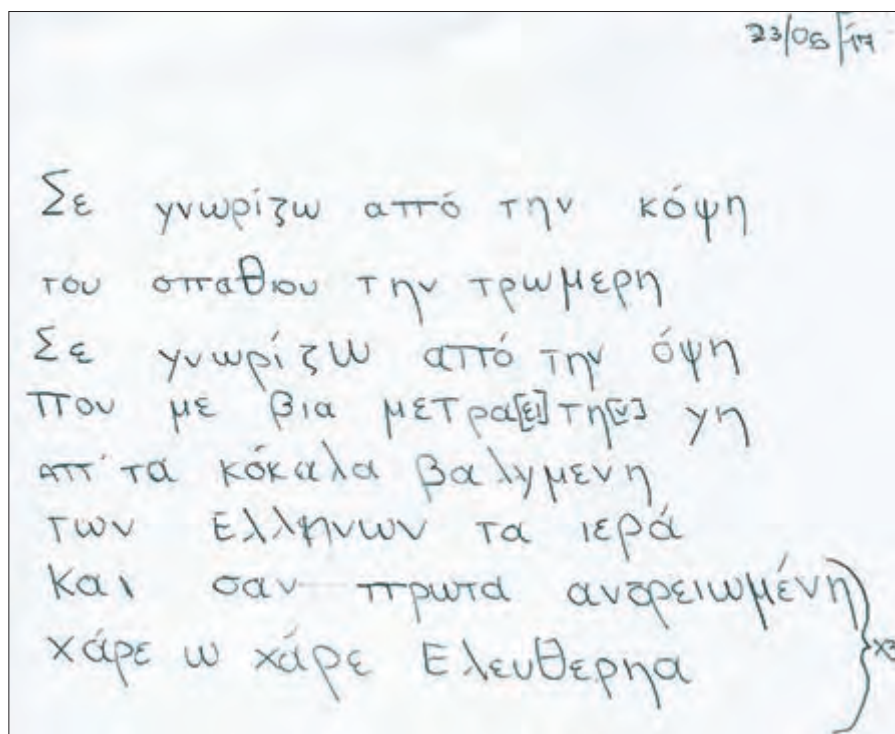 23/05/17
Σε γνωρίζω από την κόψη
του σπαθιου την τρωμερη
Σε γνωρίζω από την όψη
που με βια μετρα[ει] τη[ν] γη
απ' τα κόκαλα βαλγμενη
των Ελληνων τα ιερά
Και σαν πρωτα ανδρειωμένη
χάρε ω χάρε Ελευθερηα
x3